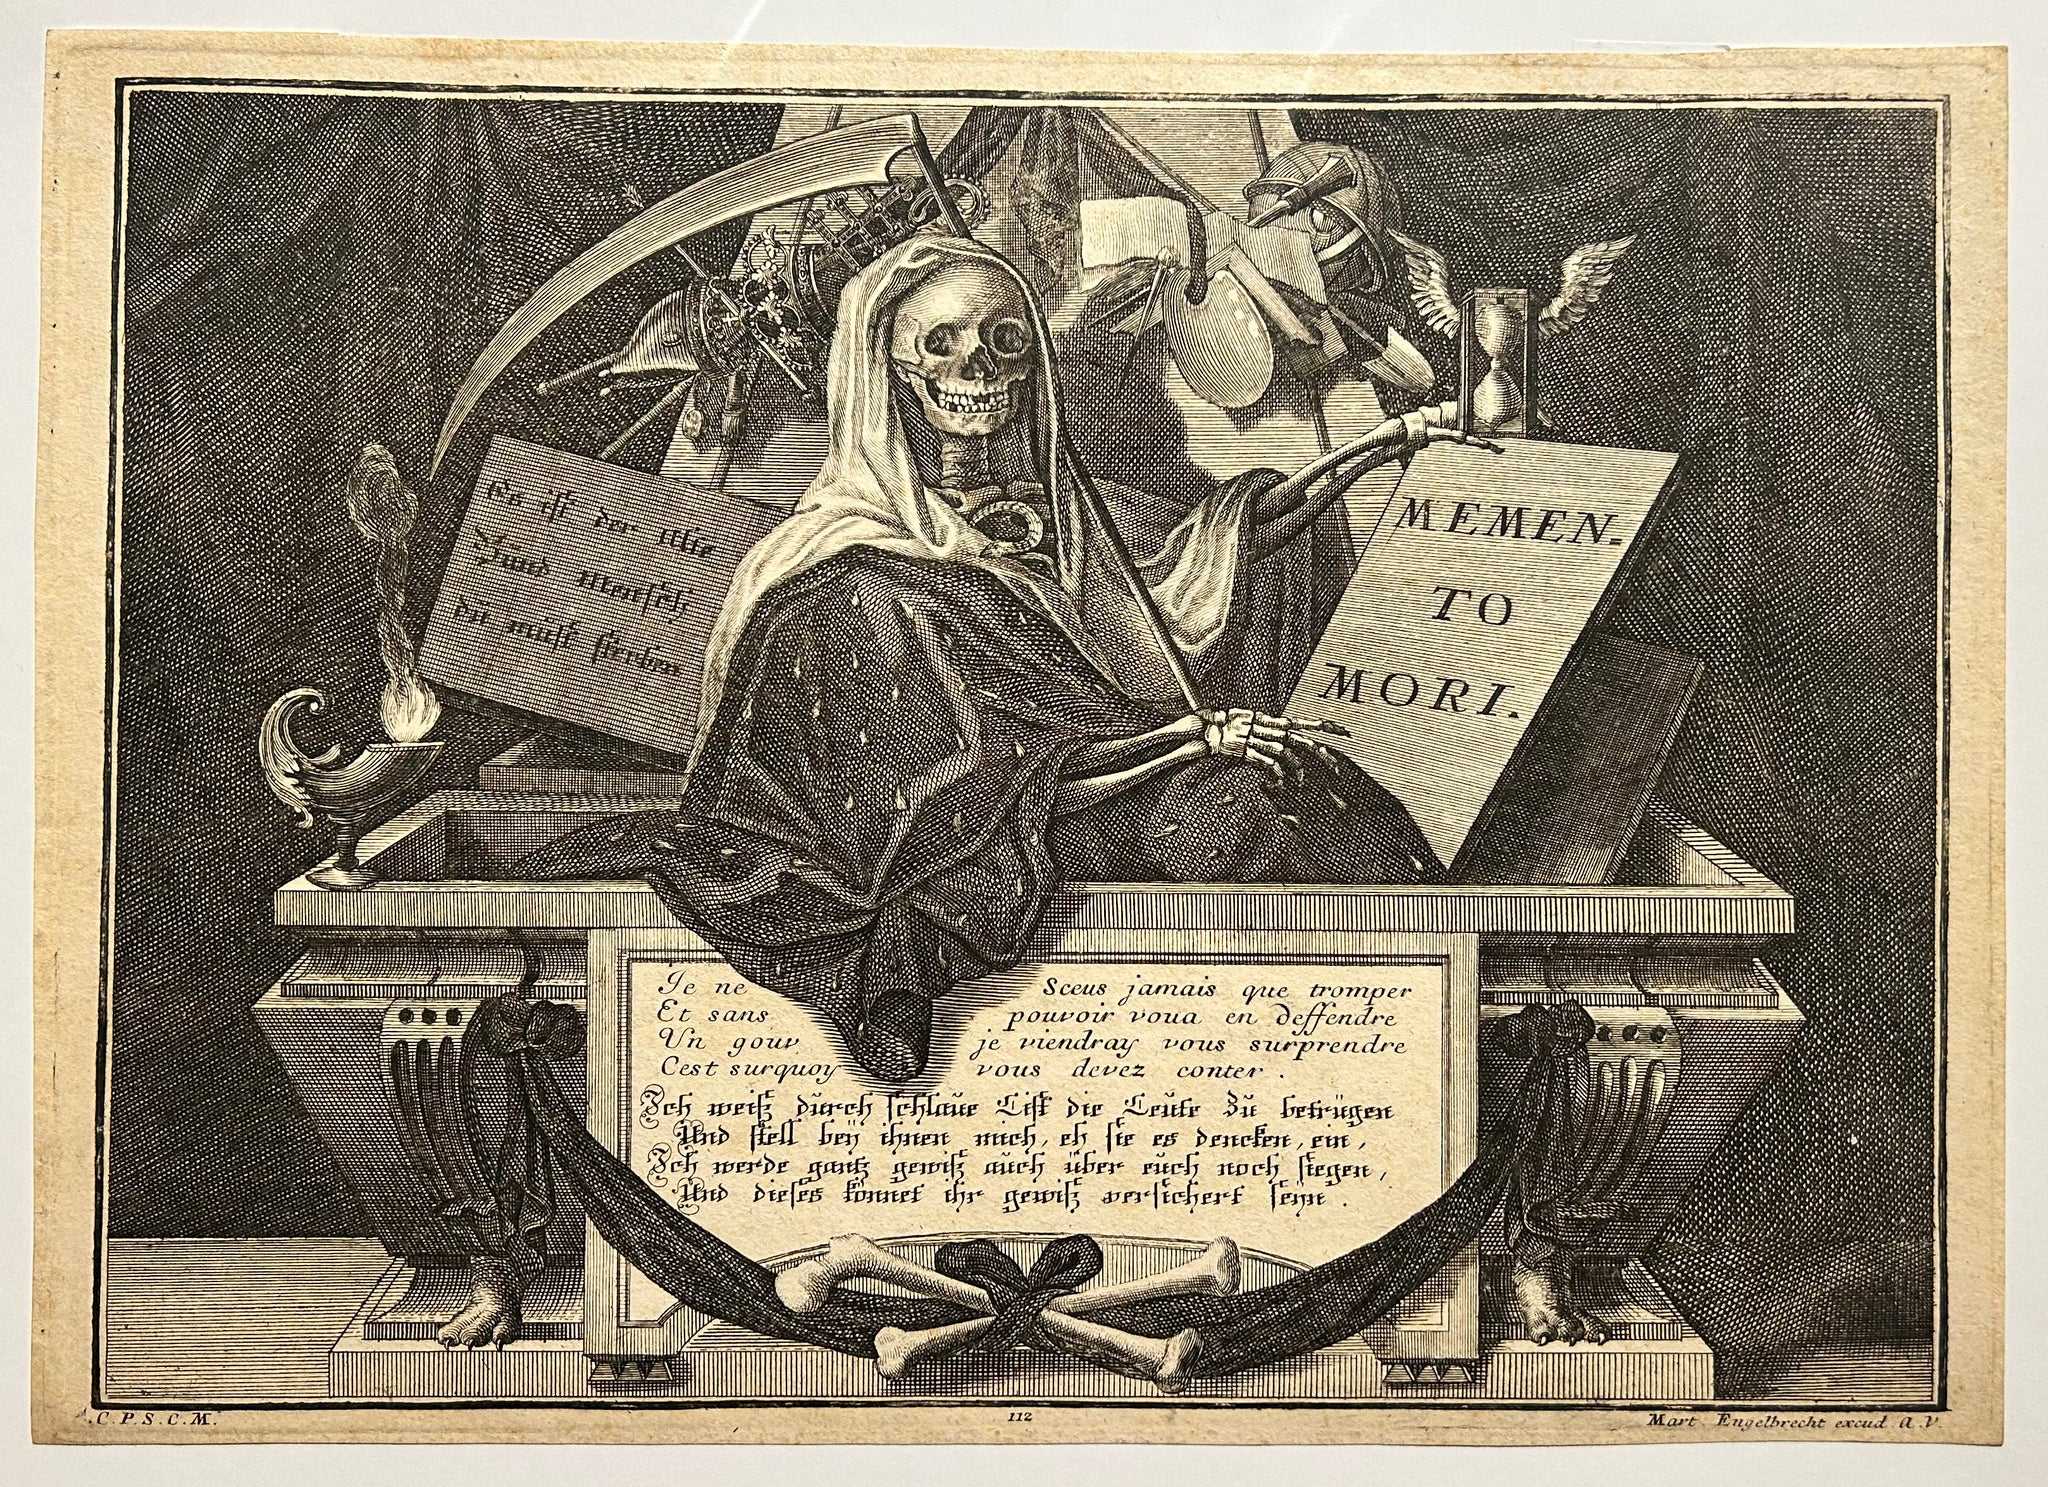 Es ist der alte
Bund mensch
du must sterben
MEMEN-
TO
MORI.
Je ne Sceus jamais que tromper
Et sans pouvoir voua en deffendre
Un gour je viendray vous surprendre
Cest surquoy vous devez conter .
Ich weiß durch schlaue List die Leute Zu betrügen
Und stell beÿ ihnen mich, eh sie es dencken, ein,
Ich werde gantz gewiß auch über euch noch siegen,
Und dieses könnet ihr gewiß versichert seyn .
.C.P.S.C.M.
112
Mart. Engelbrecht excud. A.V.